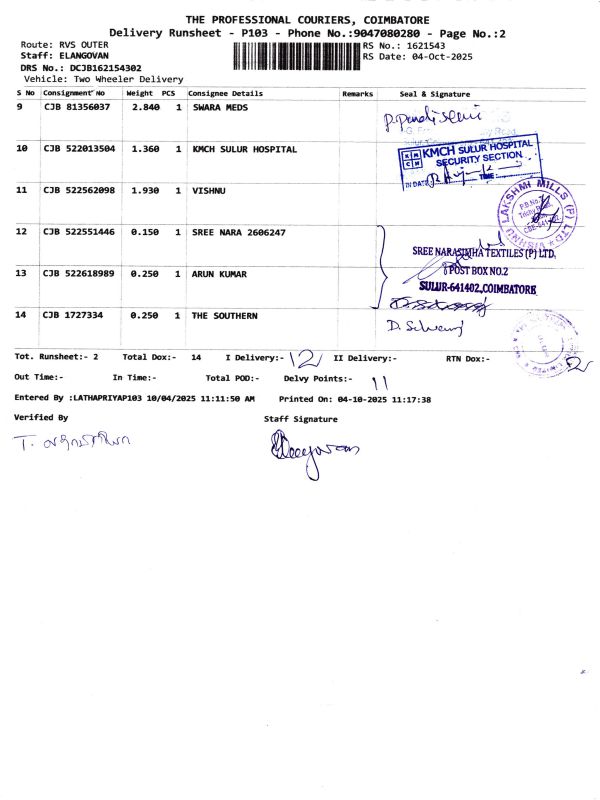 THE PROFESSIONAL COURIERS, COIMBATORE
Delivery Runsheet - P103 - Phone No.:9047080280 - Page No.:2
Route: RVS OUTER RS No.: 1621543
Staff: ELANGOVAN RS Date: 04-Oct-2025
DRS No.: DCJB162154302
Vehicle: Two Wheeler Delivery
S No Consignment No Weight PCS Consignee Details Remarks Seal & Signature
9 CJB 81356037 2.840 1 SWARA MEDS
10 CJB 522013504 1.360 1 KMCH SULUR HOSPITAL
KMCH SULUR HOSPITAL
SECURITY SECTION
IN DATE TIME:
11 CJB 522562098 1.930 1 VISHNU
VISHNU LAKSHMI MILLS (P) LTD
12 CJB 522551446 0.150 1 SREE NARA 2606247
SREE NARASIMHA TEXTILES (P) LTD,
POST BOX NO.2
SULUR-641402,COIMBATORE
13 CJB 522618989 0.250 1 ARUN KUMAR
14 CJB 1727334 0.250 1 THE SOUTHERN
Tot. Runsheet:- 2 Total Dox:- 14 I Delivery:- 12 II Delivery:- RTN Dox:- 2
Out Time:- In Time:- Total POD:- Delvy Points:- 11
Entered By :LATHAPRIYAP103 10/04/2025 11:11:50 AM Printed On: 04-10-2025 11:17:38
Verified By Staff Signature